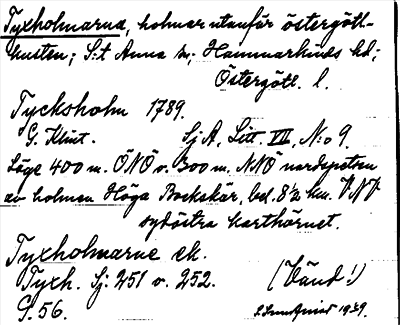 Tyxholmarna, holmar utanför östergötl-
kusten; S:t Anna sn; Hammarkinds hd;
Östergötl. l.
Tycksholm 1789.
G. Klint. Sj A, Litt. VII, N:o 9.
Läge 400 m. ÖNÖ o. 300 m. NNO
av holmen Höga Bockskär, bel. 8½ km. VNV
sydöstra karthörnet.
Tyxholmarne ek.
Tyxh. Sj: 251 o. 252. (Vänd!)
G. 56. 1949.